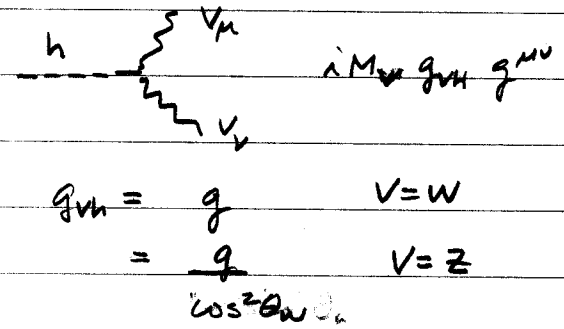 V_μ
h
i M_W g_{VH} g^{μν}
V_ν
g_{Vh} = g V=W
= g/cos²θ_W V=Z